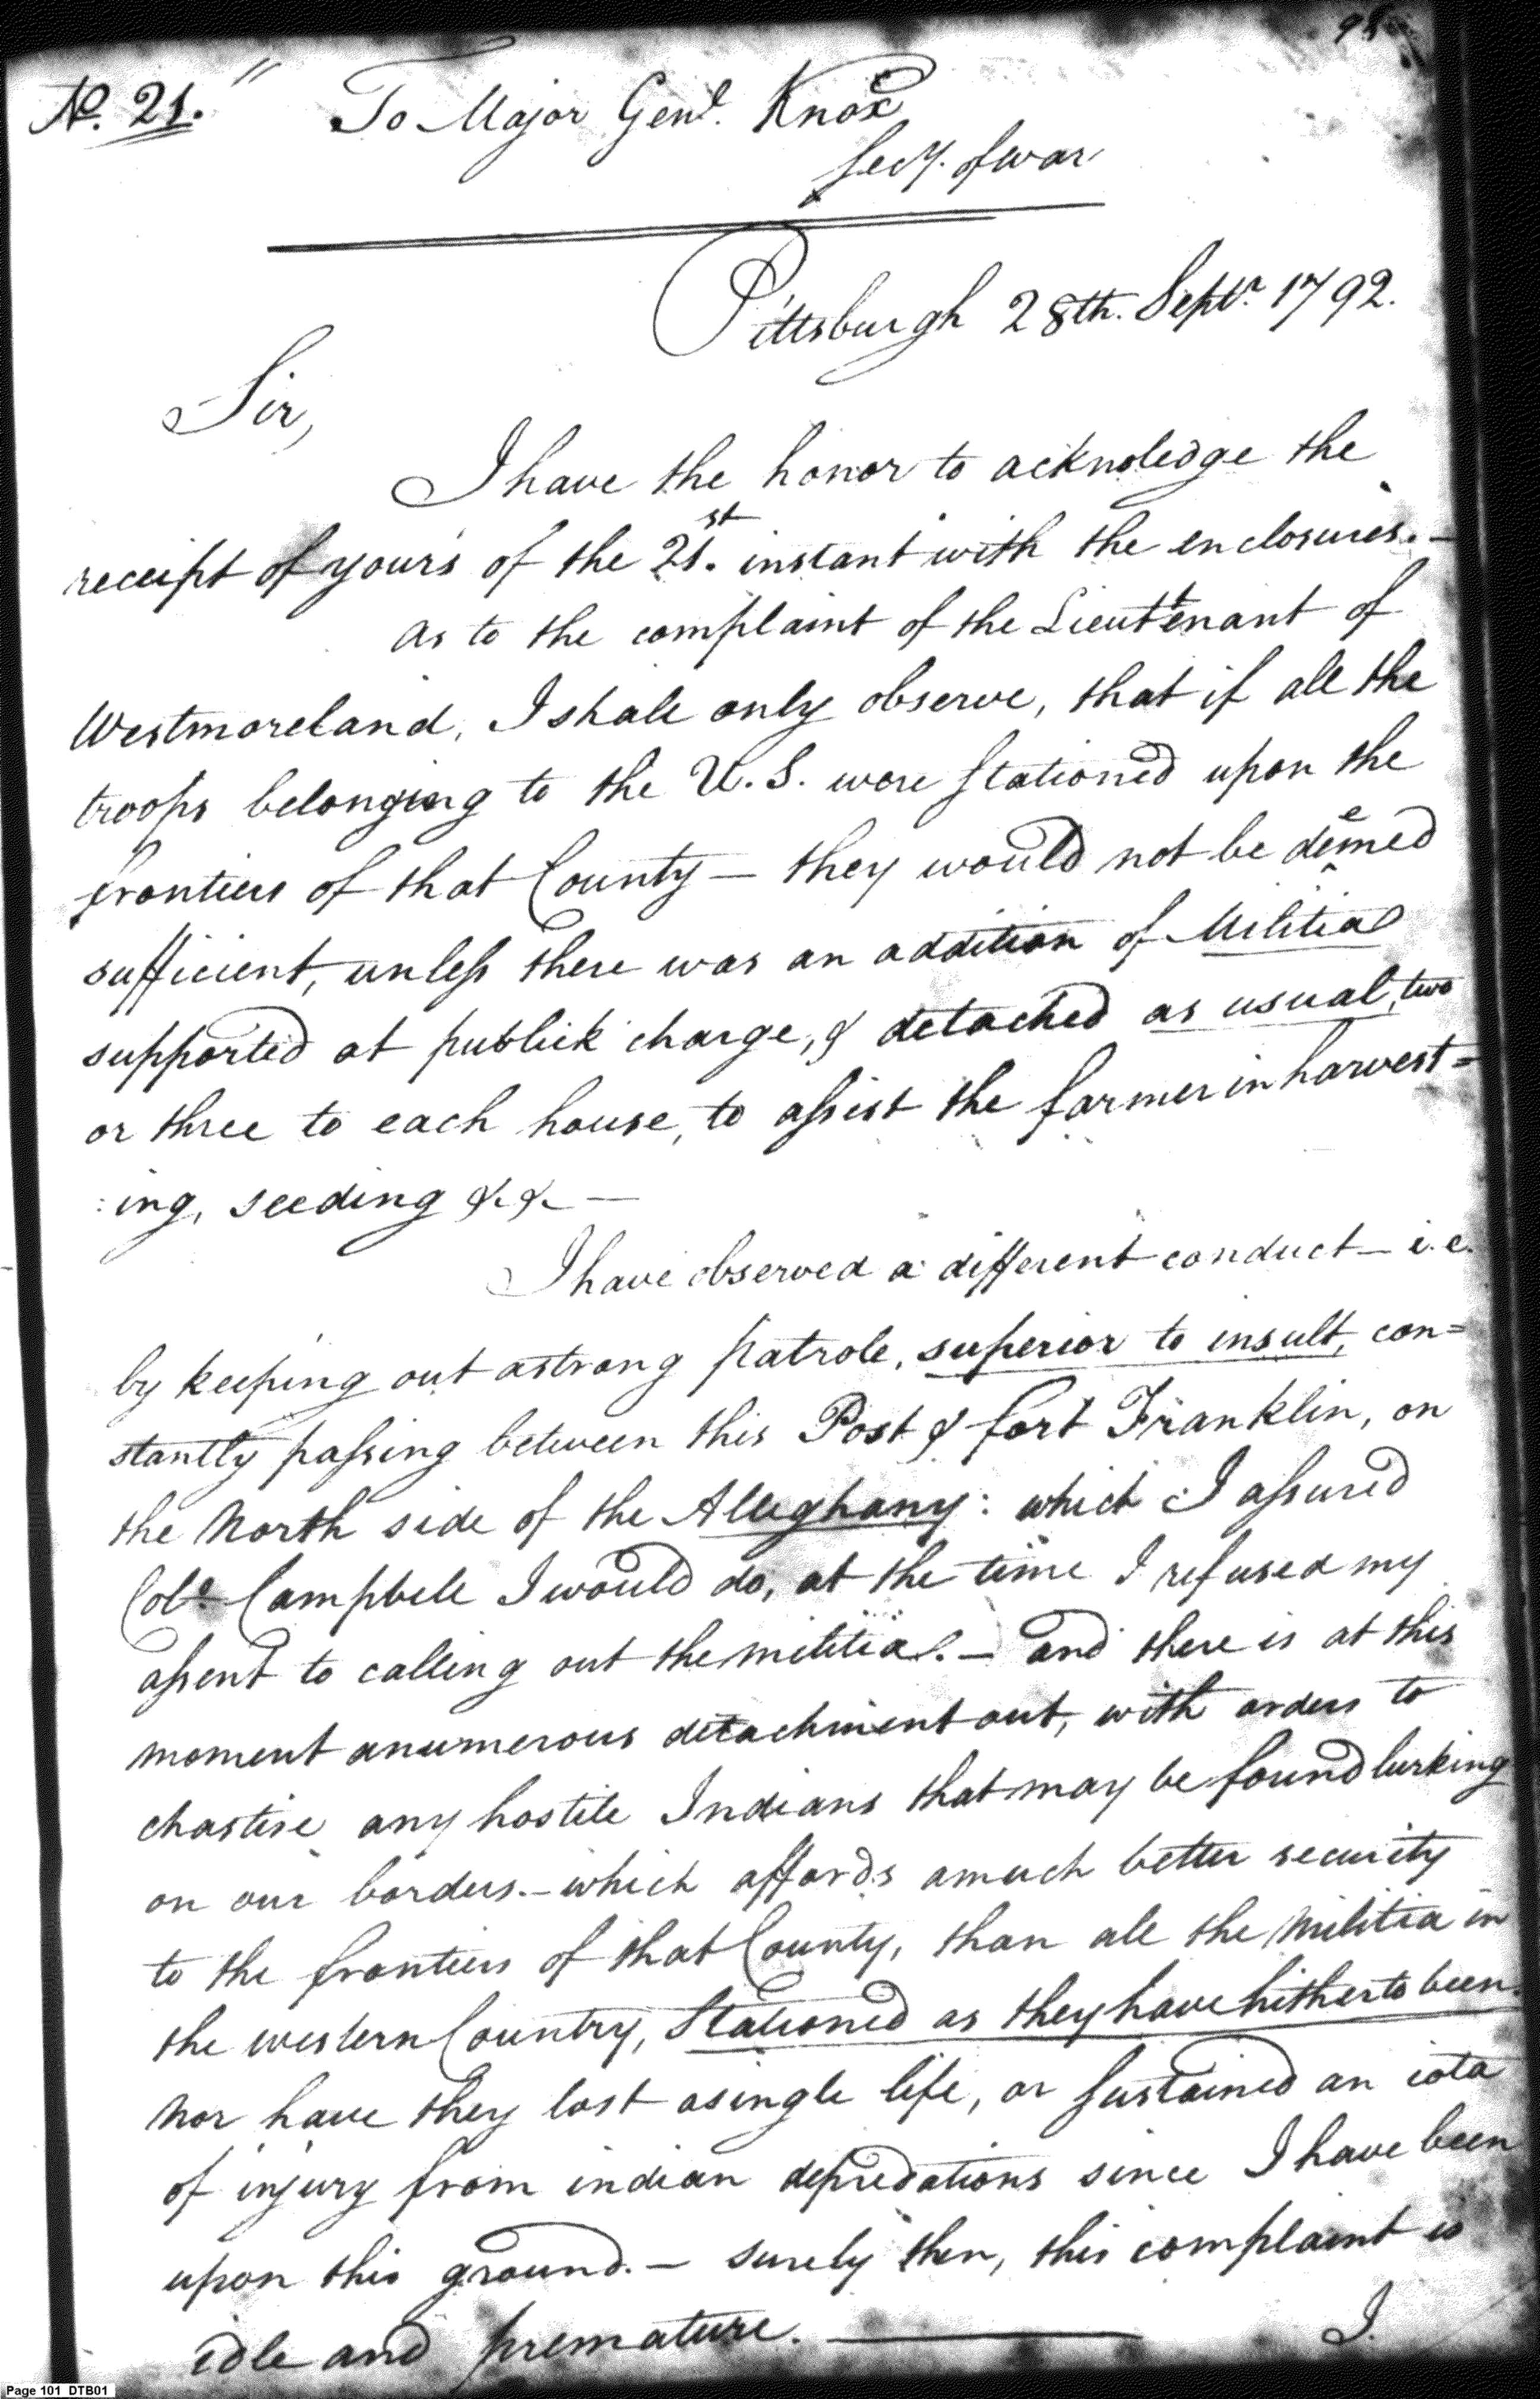 98
No. 21. " To Major Genl. Knox
Secy. of war
Pittsburgh 28th. Septr. 1792.
Sir,
I have the honor to acknoledge the
receipt of your's of the 21st. instant with the enclosures. -
as to the complaint of the Lieuttenant of
Westmoreland, I shall only observe, that if all the
troops belonging to the U. S. were stationed upon the
frontiers of that County — they would not be deemed
sufficient, unless there was an addition of Militia
supported at publick charge, & detached as usual, two
or three to each house, to assist the farmer in harvest=
:ing, seeding &. &. —
I have observed a different conduct — i.e.
by keeping out a strong patrole, superior to insult, con=
stantly passing between this Post & fort Franklin, on
the North side of the Alleghany: which I assured
Colo. Campbell I would do, at the time I refused my
assent to calling out the militia. — and there is at this
moment a numerous detachment out, with orders to
chastise any hostile Indians that may be found lurking
on our borders. — which affords a much better security
to the frontiers of that County, than all the Militia in
the western Country, Stationed as they have hitherto been.
Nor have they lost a single life, or sustained an iota
of injury from indian depredations since I have been
upon this ground. — surely then, this complaint is
idle and premature. ———
I.
Page 101 DTB01